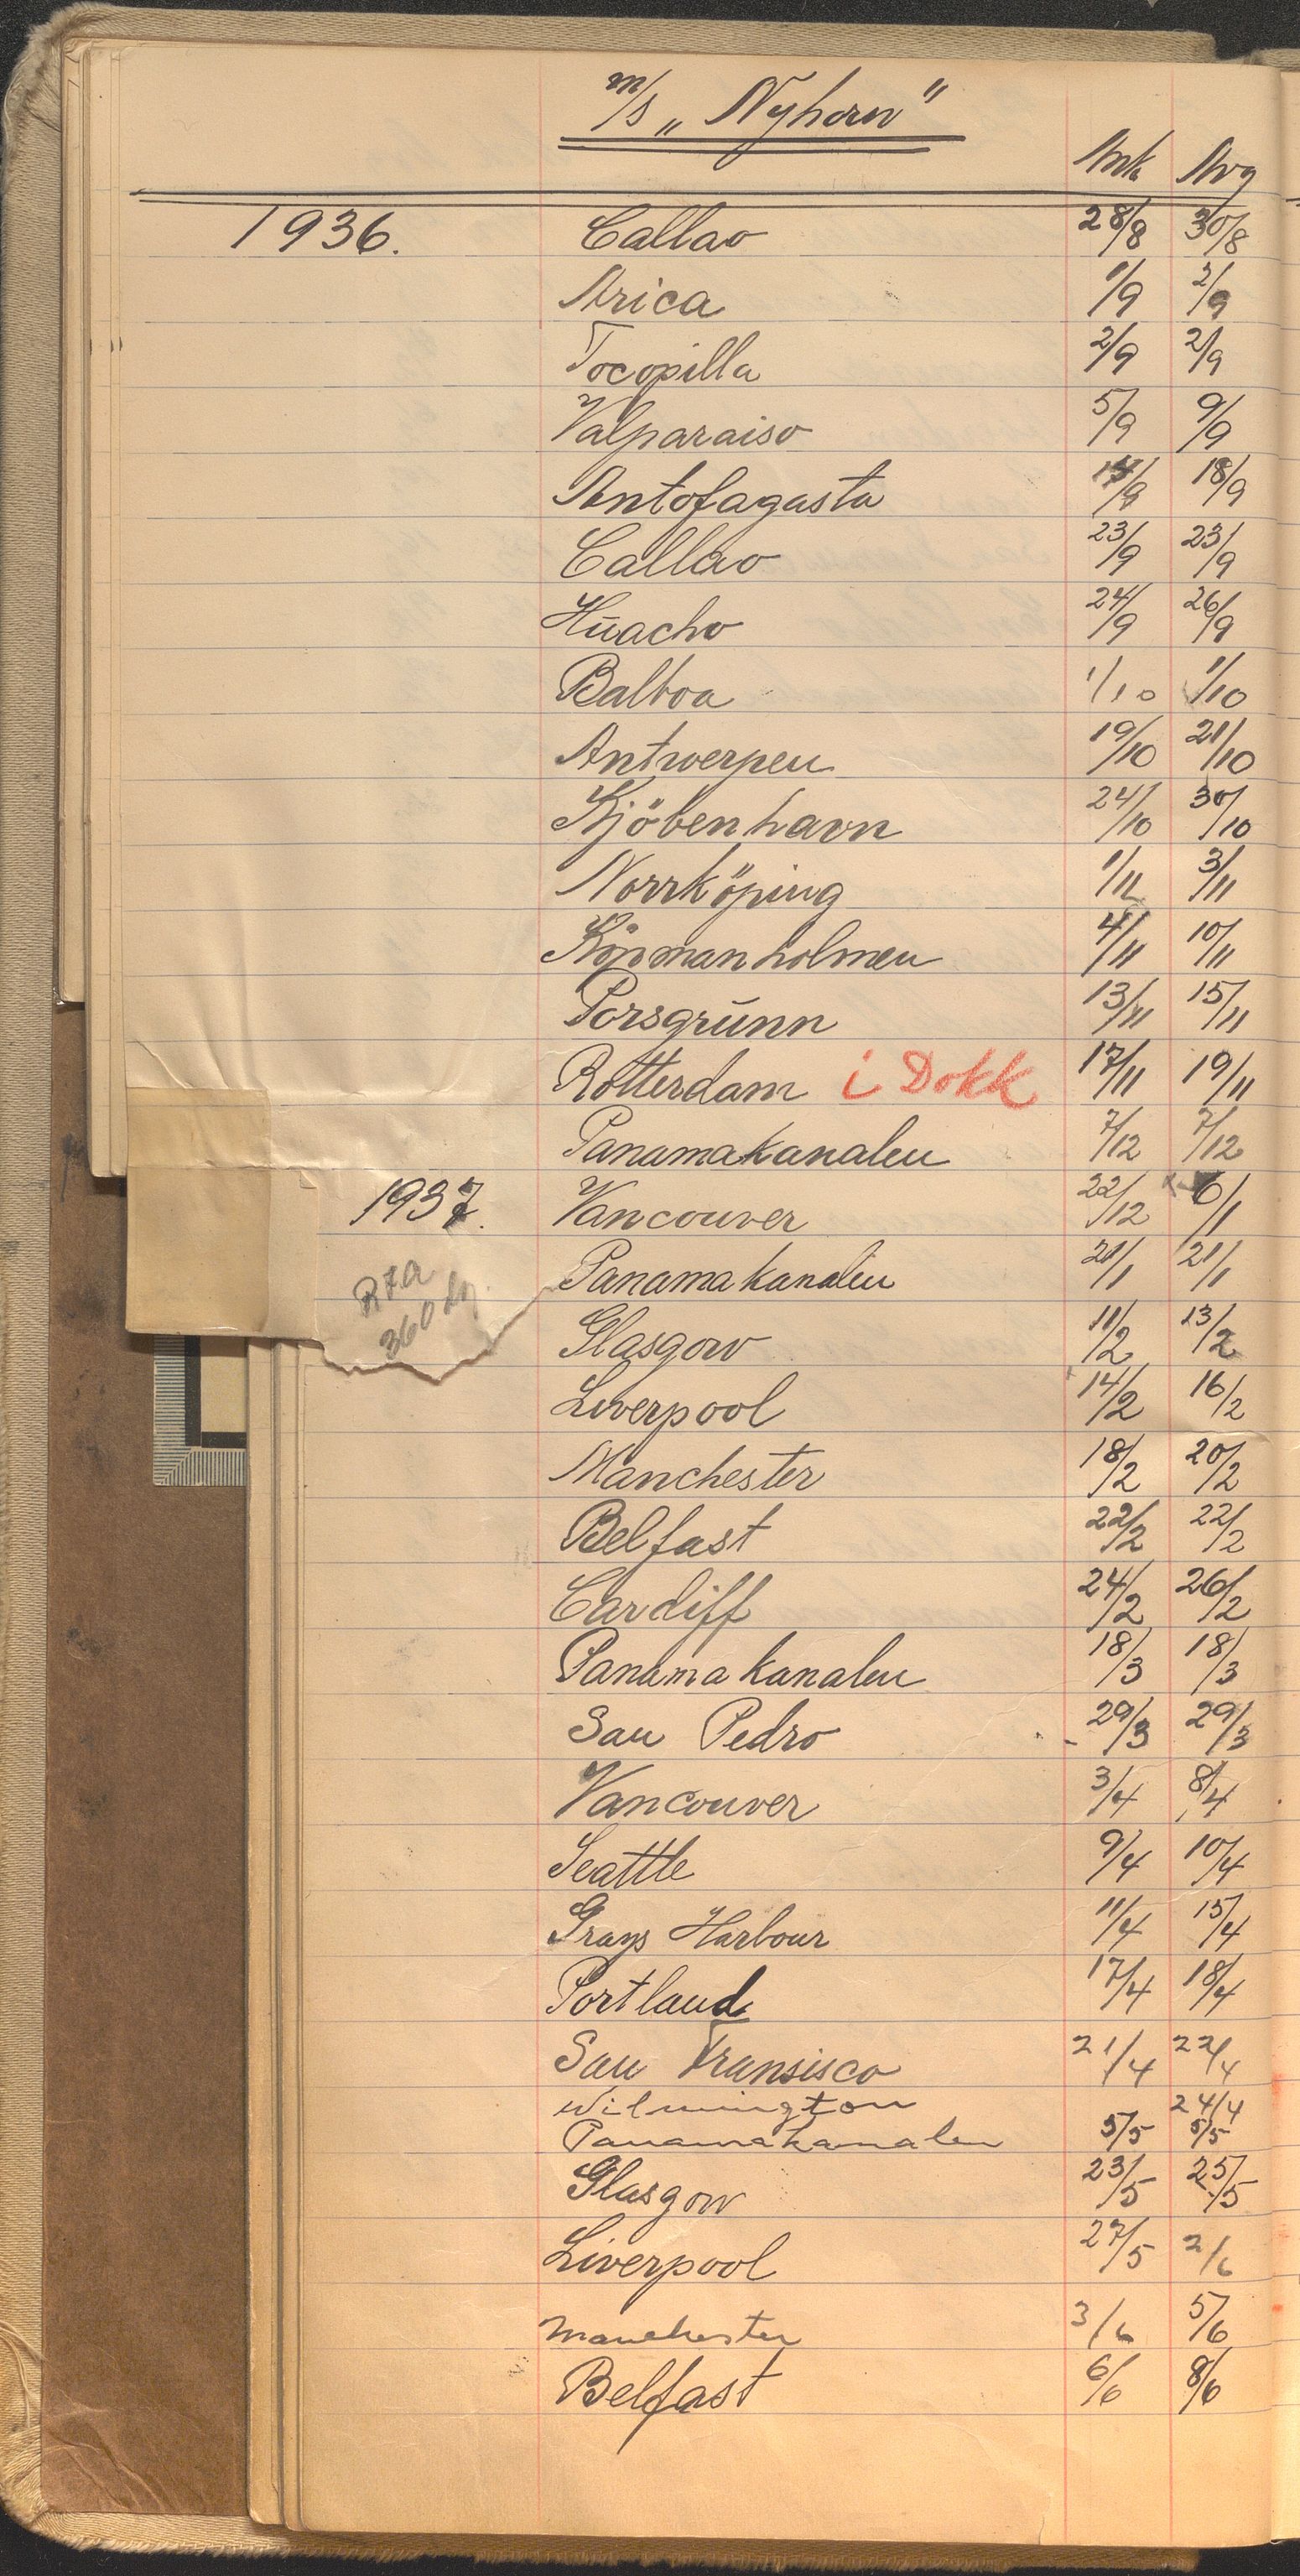 m/s „Nyhorn"
Ank Avg
1936. Callao 28/8 30/8
Arica 1/9 2/9
Tocopilla 2/9 2/9
Valparaiso 5/9 9/9
Antofagasta 18/9
Callao 23/9 23/9
Huacho 24/9 26/9
Balboa 1/10 1/10
Antwerpen 19/10 21/10
Kjöbenhavn 24/10 30/10
Norrköping 1/11 3/11
Köpmanholmen 4/11 10/11
Porsgrunn 13/11 15/11
Rotterdam i Dokk 17/11 19/11
Panamakanalen 7/12 7/12
1937. Vancouver 22/12 6/1
Panamakanalen 21/1 21/1
360
Glasgow 11/2 13/2
Liverpool 14/2 16/2
Manchester 18/2 20/2
Belfast 22/2 22/2
Cardiff 24/2 26/2
Panamakanalen 18/3 18/3
San Pedro 29/3 29/3
Vancouver 3/4 8/4
Seattle 9/4 10/4
Grays Harbour 11/4 15/4
Portland 17/4 18/4
San Fransisco 21/4 22/4
Wilmington 24/4
Panamakanalen 5/5 5/5
Glasgow 23/5 25/5
Liverpool 27/5 2/6
Manchester 3/6 5/6
Belfast 6/6 8/6